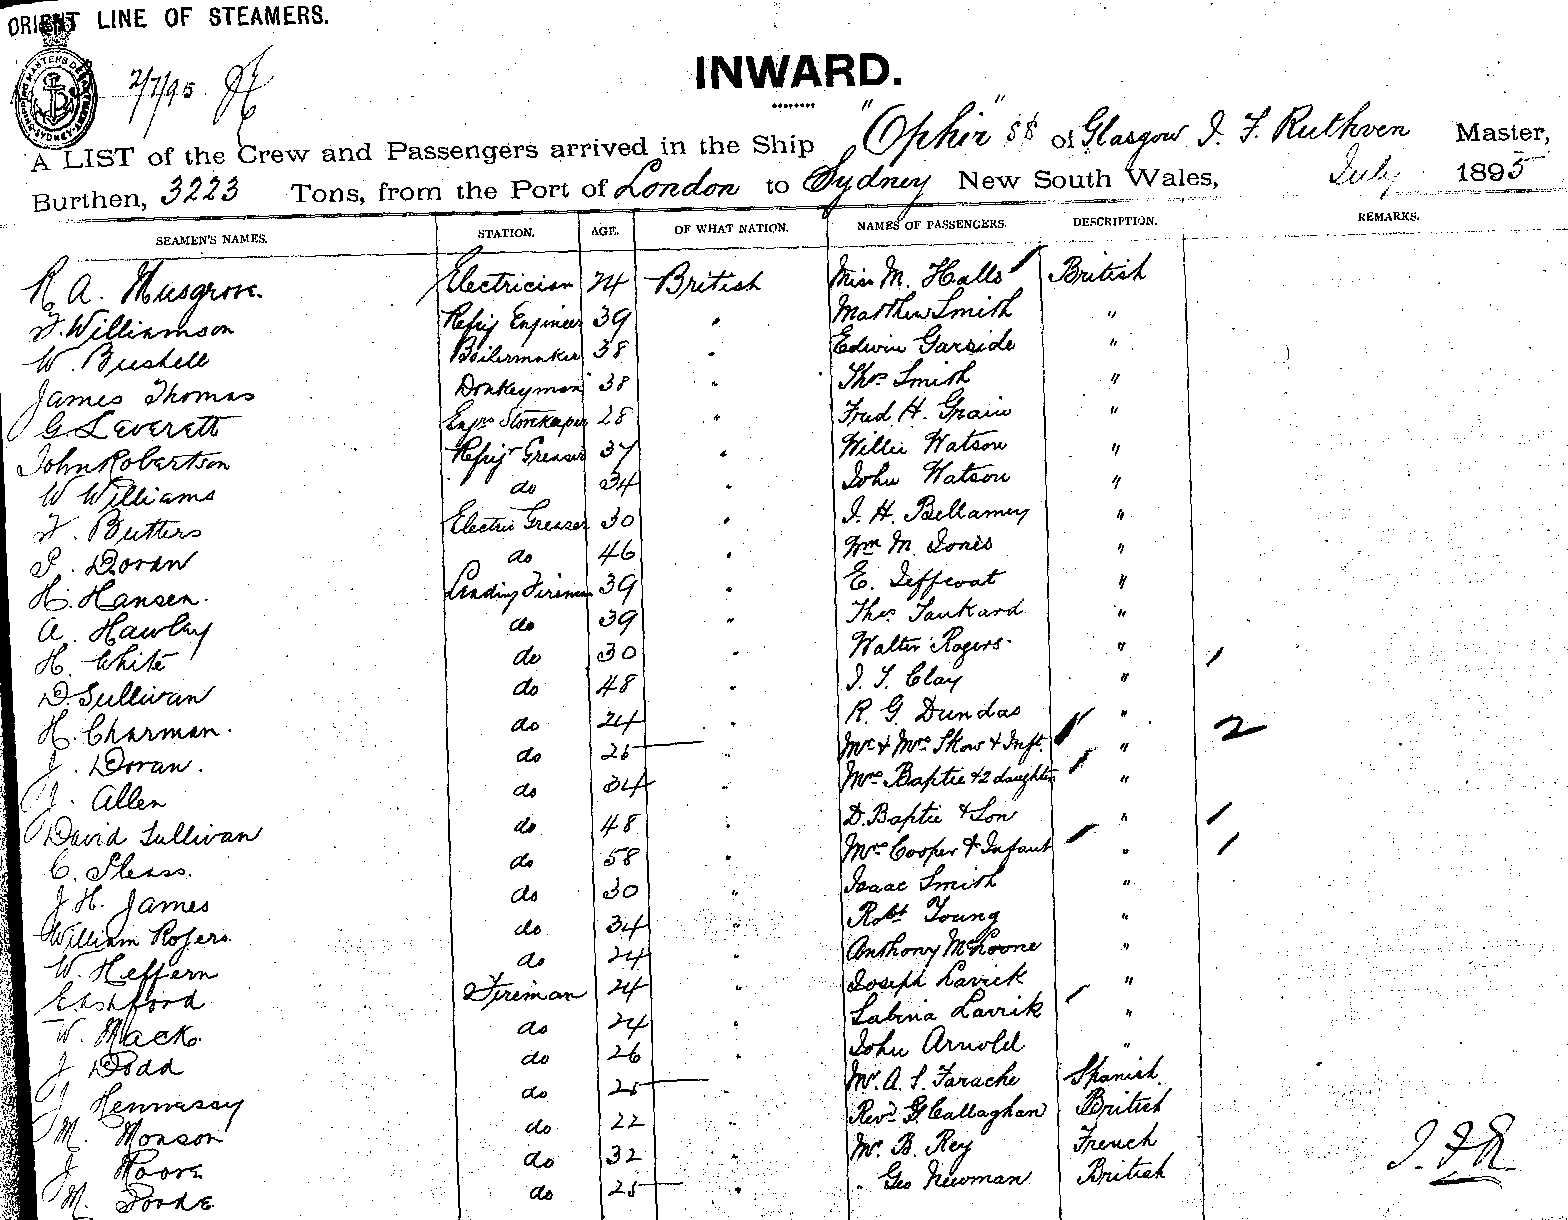 ORIENT LINE OF STEAMERS.
2/7/95
INWARD.
A LIST of the Crew and Passengers arrived in the Ship "Ophir" ss of Glasgow J. F. Ruthven Master,
Burthen, 3223 Tons, from the Port of London to Sydney New South Wales, July 1895
SEAMEN'S NAMES. STATION. AGE. OF WHAT NATION. NAMES OF PASSENGERS. DESCRIPTION. REMARKS.
R A. Musgrove. Electrician 24 British Miss M. Halls British
F. Williamson Refrig Engineer 39 " Matthew Smith "
W. Bushell Boilermaker 38 " Edwin Garside "
James Thomas Donkeyman 38 " Thos Smith "
G Leverett Engrs Storekeeper 28 " Fred H. Grain "
John Robertson Refrigr Greaser 37 " Willie Watson "
W Williams do 34 " John Watson "
F. Butters Electric Greaser 30 " J. H. Bellamey "
P. Doran do 46 " Wm M. Jones "
H. Hansen. Leading Fireman 39 E. Jeffcoat "
A. Hawley do 39 " Thos Tankard "
H. White do 30 " Walter Rogers "
D. Sullivan do 48 " J. T. Clay "
H. Charman. do 24 " R. G. Dundas "
J. Doran. do 25 Mr & Mrs Skow & Inft. " 2
J. Allen do 34 Mrs Baptie & 2 daughters "
David Sullivan do 48 " D. Baptie & Son "
C. Pleass. do 58 " Mrs Cooper & Infant "
J H. James do 30 " Isaac Smith "
William Rogers. do 34 " Robt Young "
W. Heffern do 24 " Anthony McLoone "
E Ashford Fireman 24 " Joseph Lavrik "
W. Mack. do 24 " Sabina Lavrik "
J Dodd do 26 " John Arnold "
J Hennessy do 25 Mr. A. S. Farache Spanish.
M. Monson do 22 " Revd G. Callaghan British
J Moore do 32 " Mr. B. Rey French
M. do 25 " Geo Newman British
J. F. R.